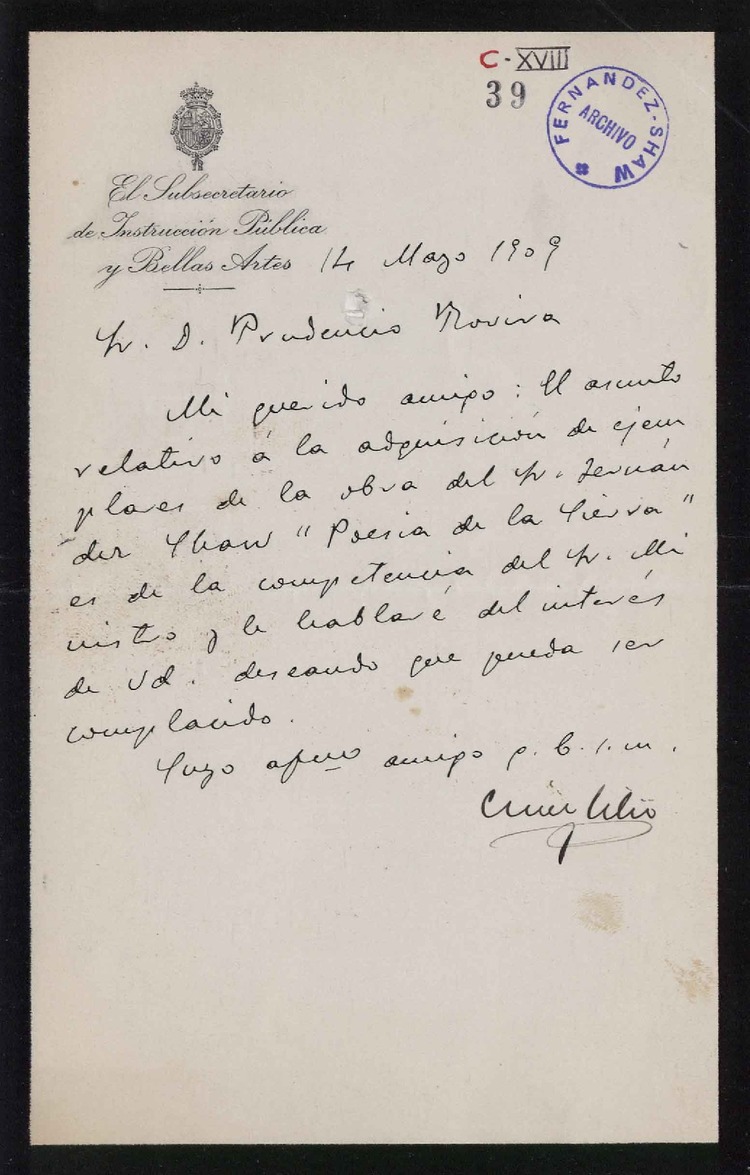 C-XVIII
39
FERNANDEZ-SHAW
ARCHIVO
El Subsecretario
de Instrucción Pública
y Bellas Artes
14 Mayo 1909
Sr. D. Prudencio Rovira
Mi querido amigo: El asunto
relativo á la adquisición de ejem
plares de la obra del Sr. Fernán
dez Shaw "Poesia de la Sierra"
es de la competencia del Sr. Mi
nistro y le hablaré del interés
de Vd. deseando que pueda ser
complacido.
Suyo afmo amigo q. b. s. m.